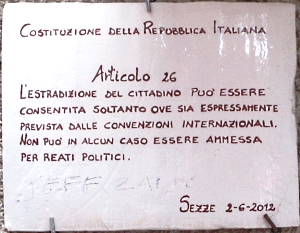 COSTITUZIONE DELLA REPUBBLICA ITALIANA
ARTICOLO 26
L'ESTRADIZIONE DEL CITTADINO PUÒ ESSERE
CONSENTITA SOLTANTO OVE SIA ESPRESSAMENTE
PREVISTA DALLE CONVENZIONI INTERNAZIONALI.
NON PUÒ IN ALCUN CASO ESSERE AMMESSA
PER REATI POLITICI.
SEZZE 2-6-2012